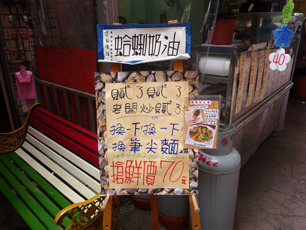 蛤蜊奶油
膩了膩了
老闆炒膩了
換一下換一下
換筆尖麵
搶鮮價70元
40